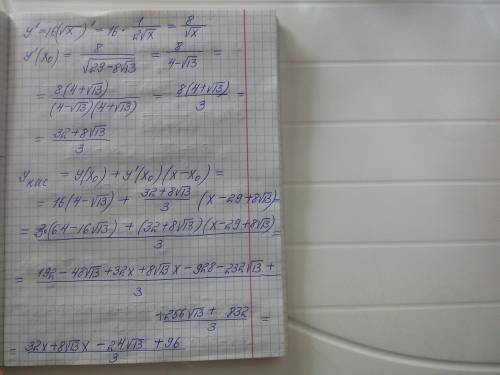 y' = 16(√x)' = 16 · 1/(2√x) = 8/√x
y'(x₀) = 8/√(29-8√13) = 8/(4-√13) =
= 8(4+√13)/((4-√13)(4+√13)) = 8(4+√13)/3 =
= (32+8√13)/3
y кас = y(x₀) + y'(x₀)(x-x₀) =
= 16(4-√13) + (32+8√13)/3 (x-29+8√13)
= (3·(64-16√13) + (32+8√13)(x-29+8√13))/3 =
= (192-48√13+32x+8√13x-928-232√13+)/3
(+256√13+832)/3 =
= (32x+8√13x-24√13+96)/3